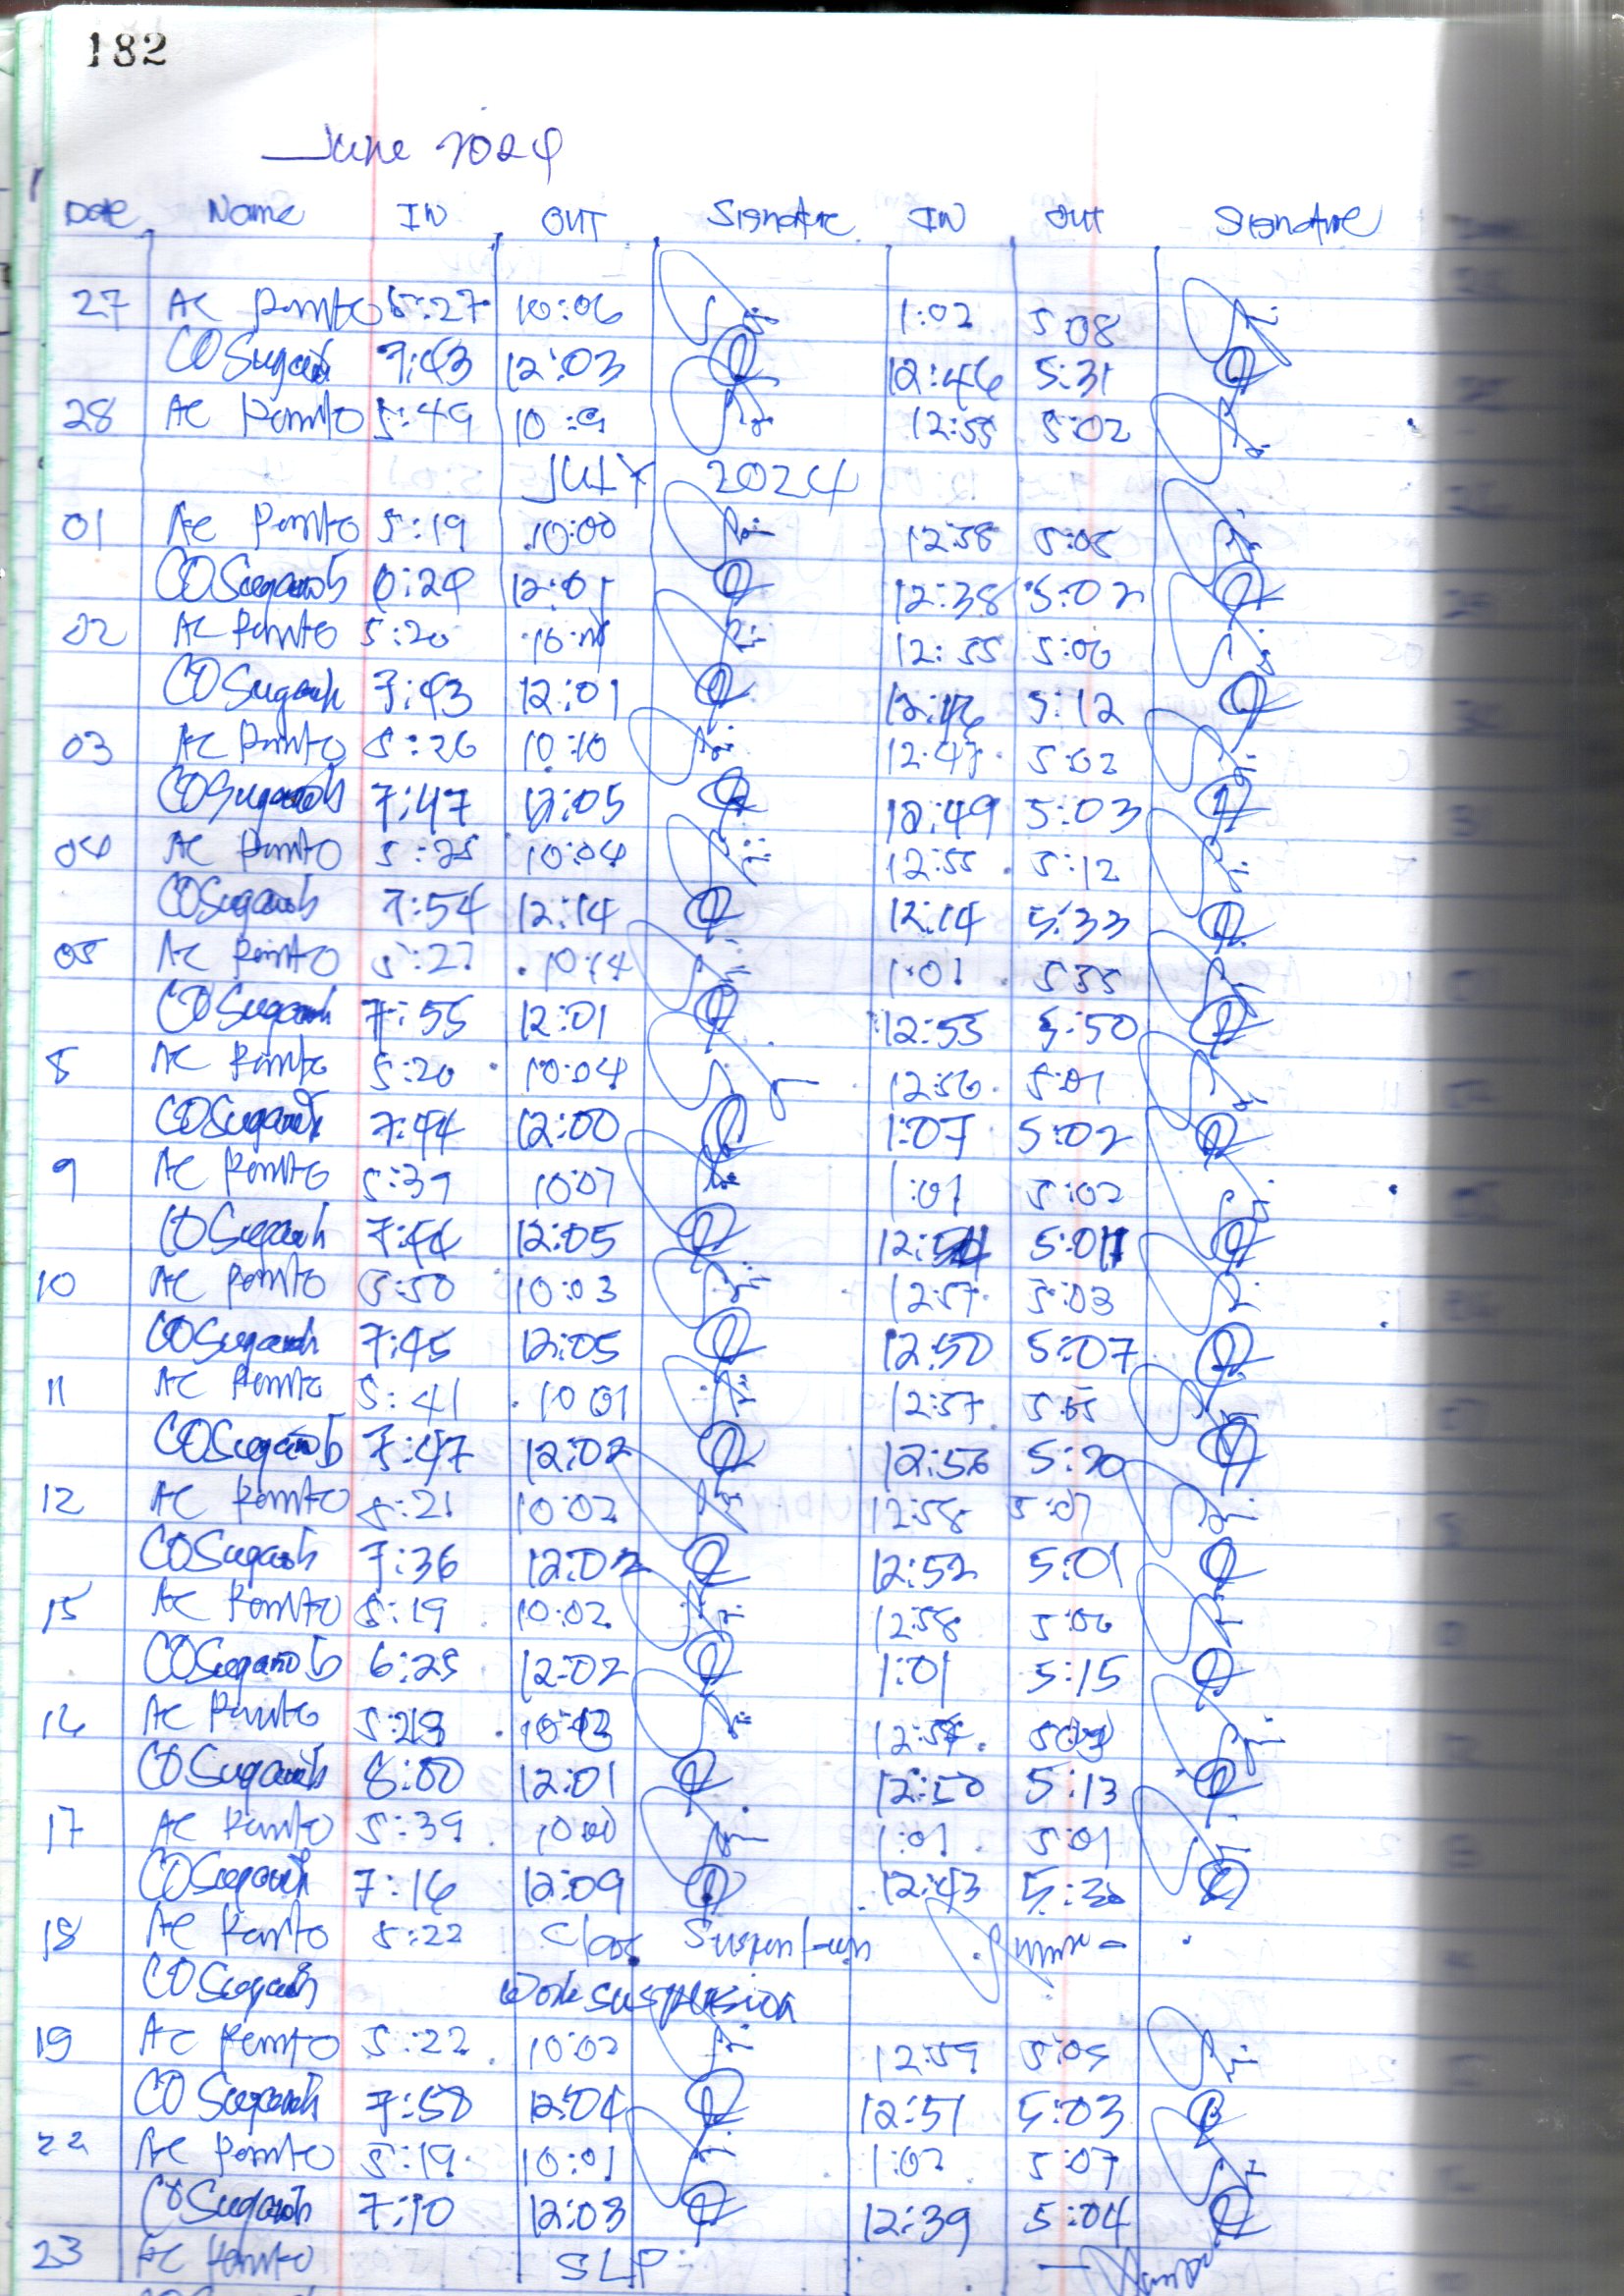 182
June 2024
Date Name IN OUT Signature IN OUT Signature
27 AC Pemito 5:27 10:06 1:02 5:08
COSuganob 7:43 12:03 12:46 5:31
28 AC Pemito 5:49 12:55 5:02
JULY 2024
01 AC Pemito 5:19 10:00 12:58 5:05
COSuganob 12:01 12:38 5:02
02 AC Pemito 5:20 12:55 5:06
COSuganob 7:43 12:01 5:12
03 AC Pemito 5:26 10:10 12:47 5:02
COSuganob 7:47 12:05 12:49 5:03
04 AC Pemito 5:25 10:04 12:55 5:12
COSuganob 7:54 12:14 12:14 5:33
05 AC Pemito 5:27 10:14 1:01 535
COSuganob 7:55 12:01 12:53 5:50
8 AC Pemito 5:20 10:04 12:56 5:01
COSuganob 7:44 12:00 1:07 5:02
9 AC Pemito 5:39 10:07 1:01 5:02
COSuganob 7:44 12:05
10 AC Pemito 5:50 10:03 12:57 5:03
COSuganob 7:45 12:05 12:50 5:07
11 AC Pemito 5:41 10 01 12:57 5:05
COSuganob 7:47 12:02 12:56 5:20
12 AC Pemito 5:21 10:02 12:58 5:07
COSuganob 7:36 12:02 12:52 5:01
15 AC Pemito 5:19 10:02 12:58 5:06
COSuganob 6:25 12:02 1:01 5:15
16 AC Pemito
COSuganob 8:00 12:01 12:50 5:13
17 AC Pemito 5:39 10:00 1:01 5:01
COSuganob 7:16 12:09 12:43
18 AC Pemito 5:22 Class Suspension
COSuganob Work suspension
19 AC Pemito 5:22 10:02 12:59 5:05
COSuganob 7:50 12:04 12:51 5:03
22 AC Pemito 5:19 10:01 1:02 5:07
COSuganob 7:10 12:03 12:39 5:04
23 AC Pemito SLP